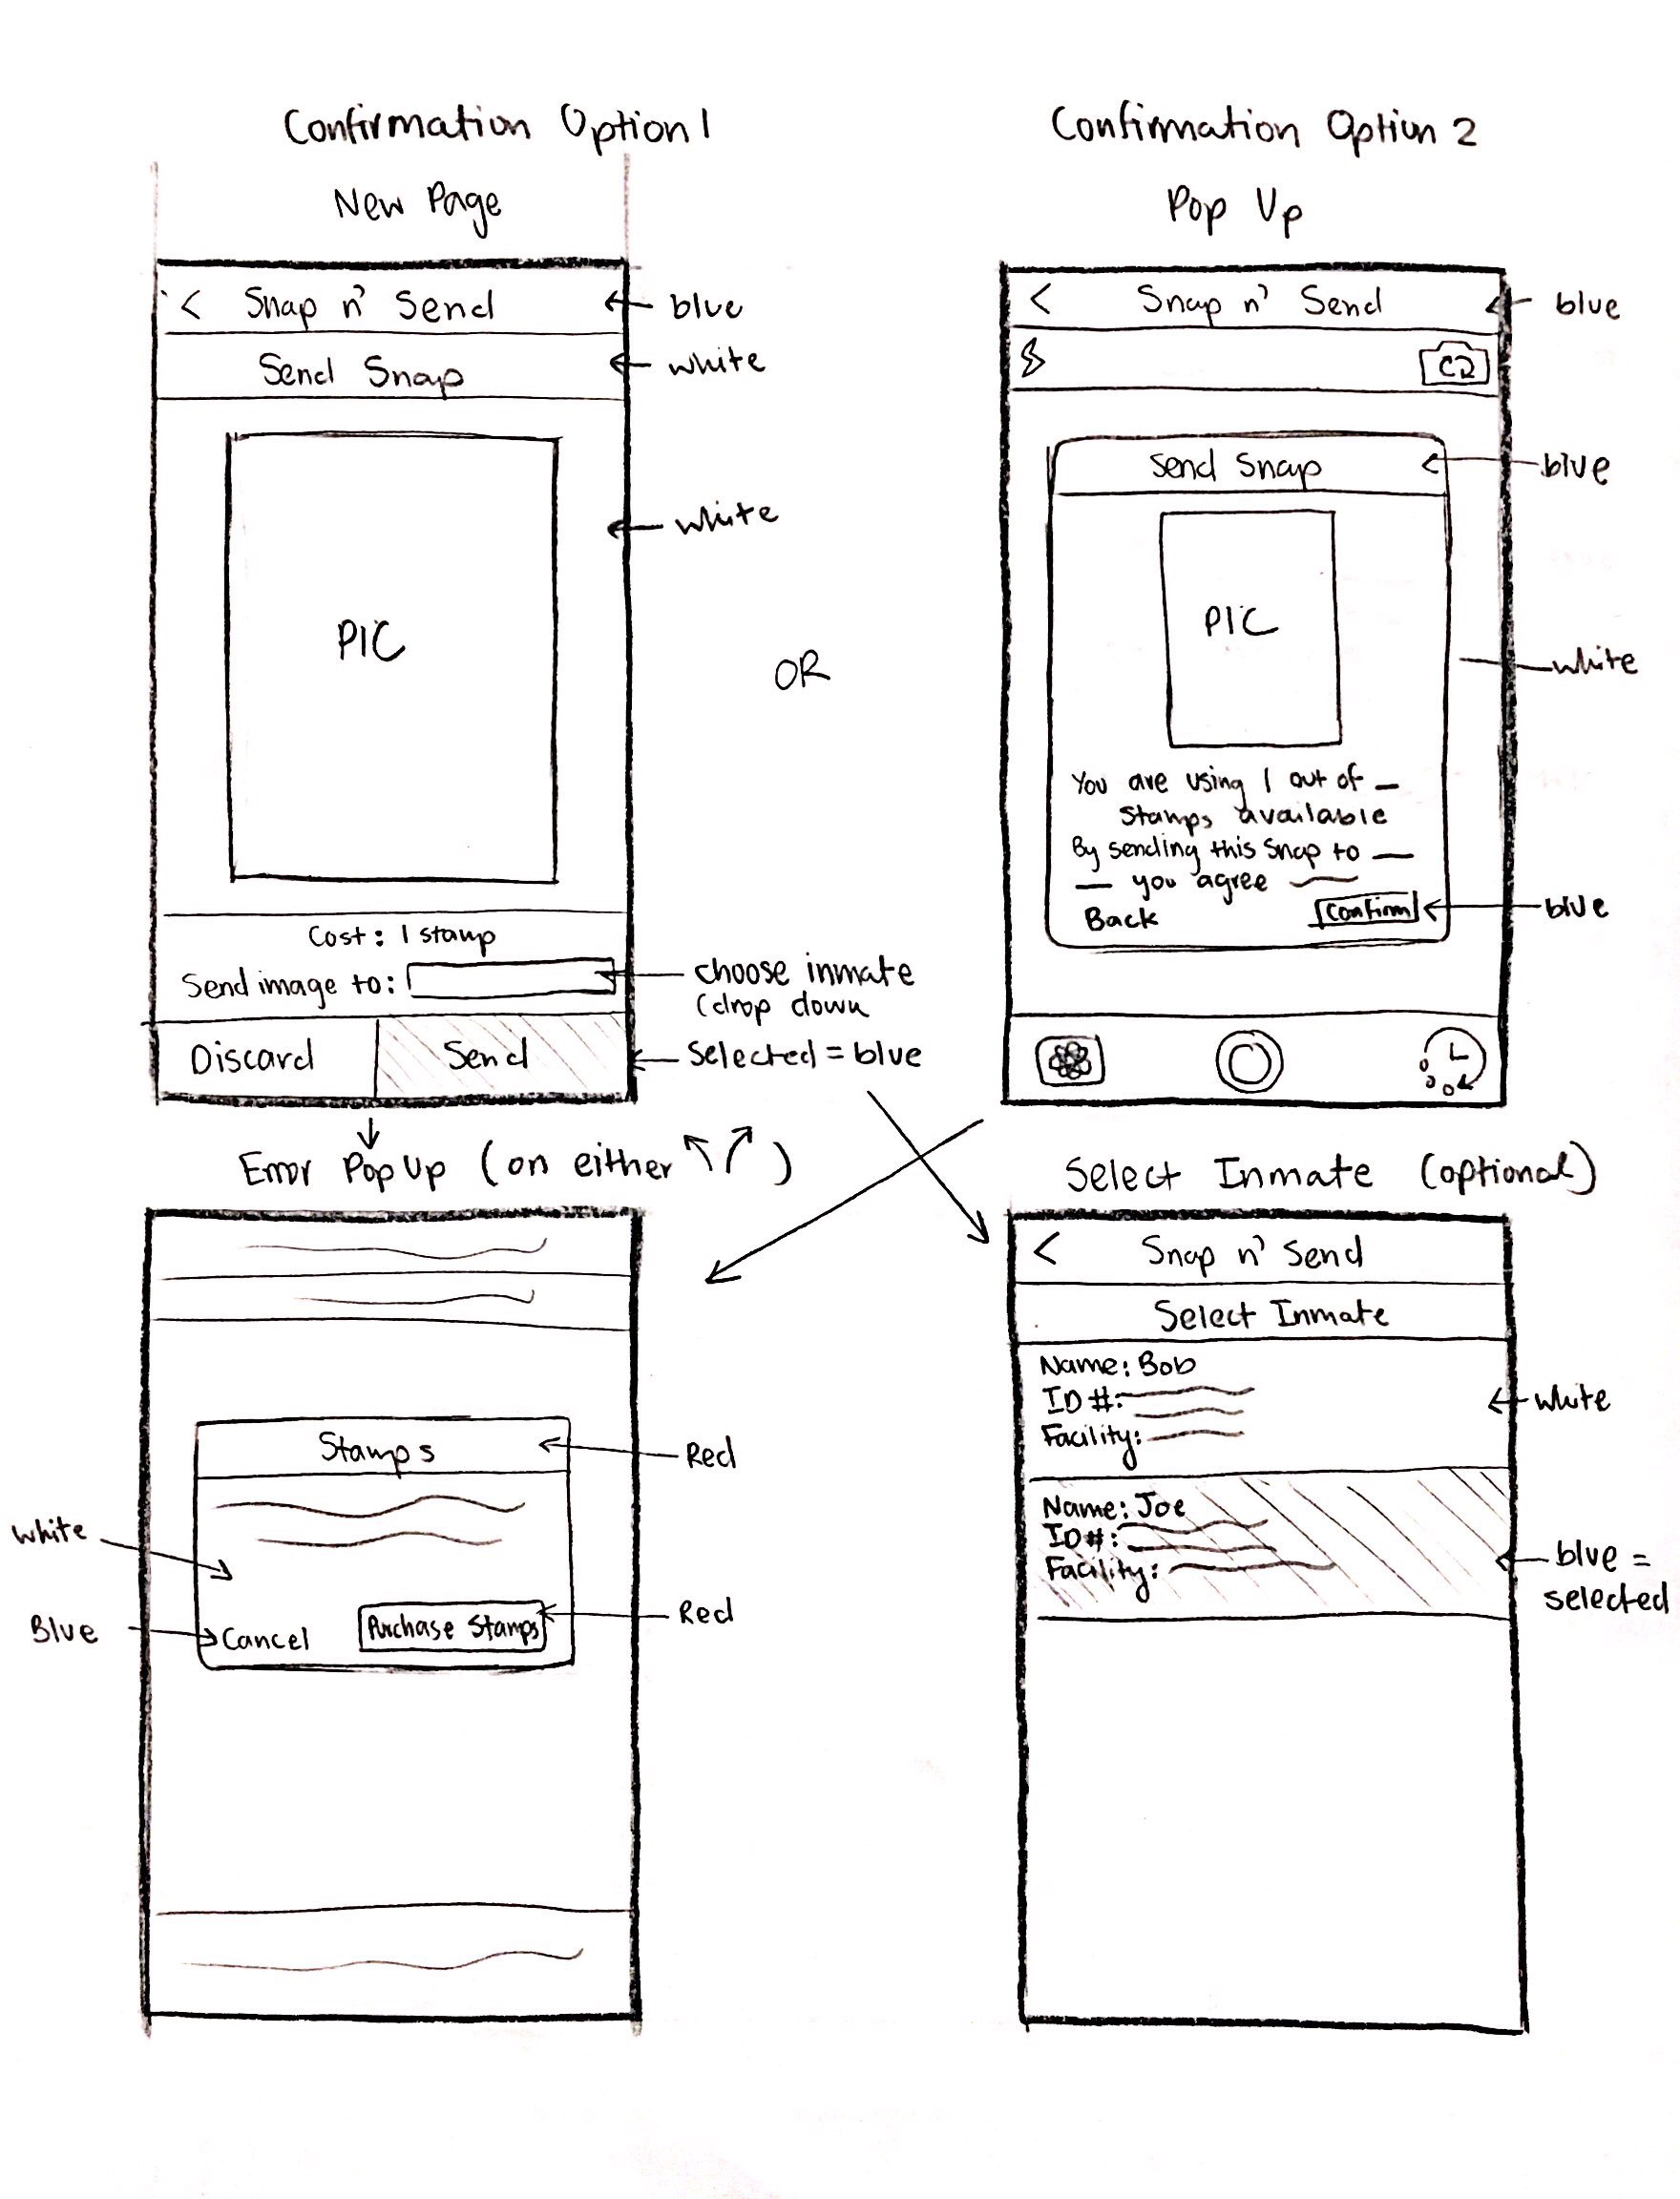 Confirmation Option 1
New Page
< Snap n' Send
blue
Send Snap
white
white
PIC
Cost: 1 stamp
Send image to:
choose inmate
(drop down
Discard
Send
Selected = blue
OR
Confirmation Option 2
Pop Up
< Snap n' Send
blue
Send Snap
blue
PIC
white
You are using 1 out of _
Stamps available
By sending this Snap to __
_ you agree
Back
Confirm
blue
Error Pop Up (on either )
Stamps
Red
white
Blue
Cancel
Purchase Stamps
Red
Select Inmate (optional)
< Snap n' Send
Select Inmate
Name: Bob
ID #:
Facility:
white
Name: Joe
ID #:
Facility:
blue =
selected